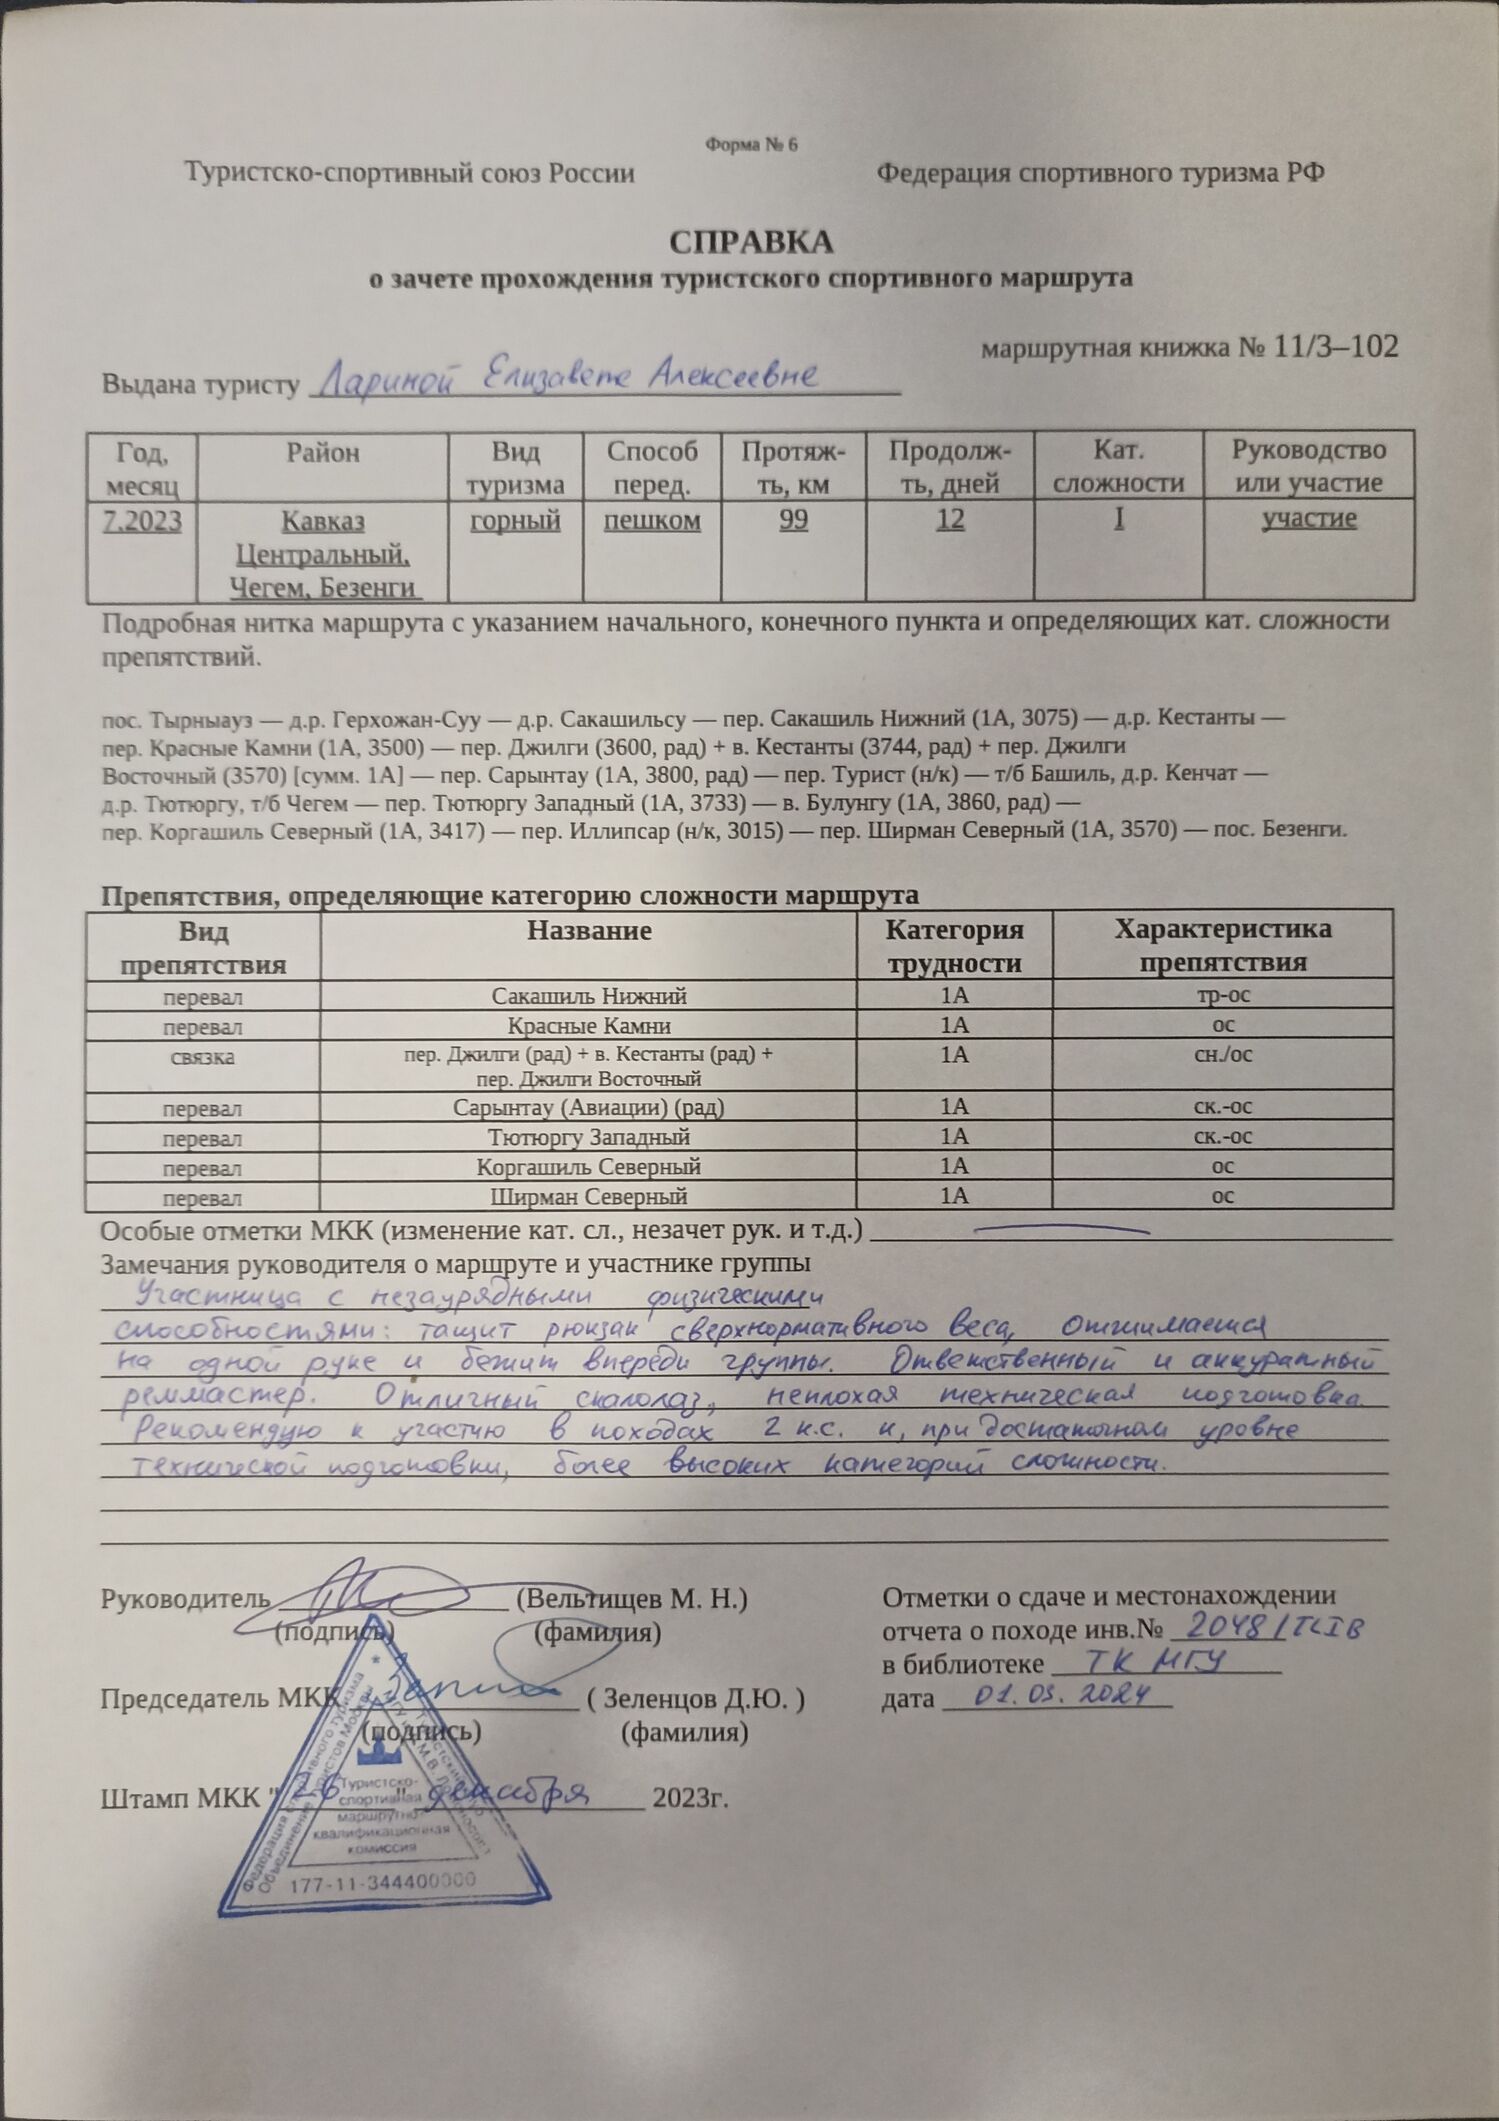 Форма № 6
Туристско-спортивный союз России Федерация спортивного туризма РФ
СПРАВКА
о зачете прохождения туристского спортивного маршрута
маршрутная книжка № 11/3–102
Выдана туристу Лариной Елизавете Алексеевне
Год, месяц Район Вид туризма Способ перед. Протяж-ть, км Продолж-ть, дней Кат. сложности Руководство или участие
7.2023 Кавказ Центральный, Чегем, Безенги горный пешком 99 12 I участие
Подробная нитка маршрута с указанием начального, конечного пункта и определяющих кат. сложности
препятствий.
пос. Тырныауз — д.р. Герхожан-Суу — д.р. Сакашильсу — пер. Сакашиль Нижний (1А, 3075) — д.р. Кестанты —
пер. Красные Камни (1А, 3500) — пер. Джилги (3600, рад) + в. Кестанты (3744, рад) + пер. Джилги
Восточный (3570) [сумм. 1А] — пер. Сарынтау (1А, 3800, рад) — пер. Турист (н/к) — т/б Башиль, д.р. Кенчат —
д.р. Тютюргу, т/б Чегем — пер. Тютюргу Западный (1А, 3733) — в. Булунгу (1А, 3860, рад) —
пер. Коргашиль Северный (1А, 3417) — пер. Иллипсар (н/к, 3015) — пер. Ширман Северный (1А, 3570) — пос. Безенги.
Препятствия, определяющие категорию сложности маршрута
Вид препятствия Название Категория трудности Характеристика препятствия
перевал Сакашиль Нижний 1А тр-ос
перевал Красные Камни 1А ос
связка пер. Джилги (рад) + в. Кестанты (рад) + пер. Джилги Восточный 1А сн./ос
перевал Сарынтау (Авиации) (рад) 1А ск.-ос
перевал Тютюргу Западный 1А ск.-ос
перевал Коргашиль Северный 1А ос
перевал Ширман Северный 1А ос
Особые отметки МКК (изменение кат. сл., незачет рук. и т.д.)
Замечания руководителя о маршруте и участнике группы
Участница с незаурядными физическими
способностями: тащит рюкзак сверхнормативного веса, отжимается
на одной руке и бежит впереди группы. Ответственный и аккуратный
реммастер. Отличный скалолаз, неплохая техническая подготовка.
Рекомендую к участию в походах 2 к.с. и, при достаточном уровне
технической подготовки, более высоких категорий сложности.
Руководитель (Вельтищев М. Н.) Отметки о сдаче и местонахождении
(подпись) (фамилия) отчета о походе инв.№ 2048/
в библиотеке ТК МГУ
Председатель МКК ( Зеленцов Д.Ю. ) дата 01.03.2024
(подпись) (фамилия)
Штамп МКК "26" декабря 2023г.
Федерация спортивного туризма
Объединение туристов Москвы
Туристский клуб
МГУ им. М.В. Ломоносова
Туристско-
спортивная
маршрутно-
квалификационная
комиссия
177-11-344400000